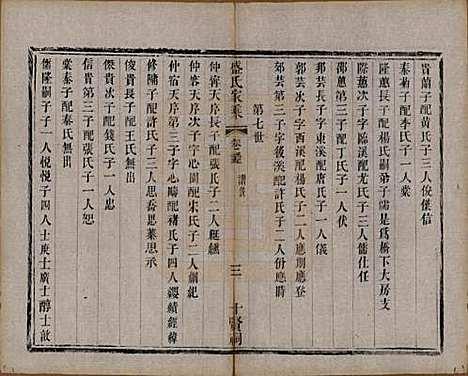 貴蘭子配黃氏子三人俊僅信
秦菊子配李氏子一人棠
隆蕙長子配楊氏嗣弟子儒是爲橋下大房支
隆蕙次子字臨溪配尤氏子三人儒仕任
邵蕙子配丁氏子一人伏
邦芸長子字東溪配唐氏子一人儀
郭芸次子字西溪配楊氏子二人應期應登
芸第三子字後溪配許氏子二人份應時
第七世
盛氏家集
卷
譜
三
十賢祠
仲 天序長子配張氏子二人
仲容天序次子字心 配宋氏子二人 紀
仲宿天序第三子字心疇配褚氏子四人 績經緯
修 子配許氏子三人思喬思萊思承
俊貴長子配王氏無出
傑貴次子配錢氏子一人忠
信貴第三子配張氏子一人恕
棠秦子配秦氏無出
儒隆嗣子子一人悅悅子四人士庚士廣士醇士敆